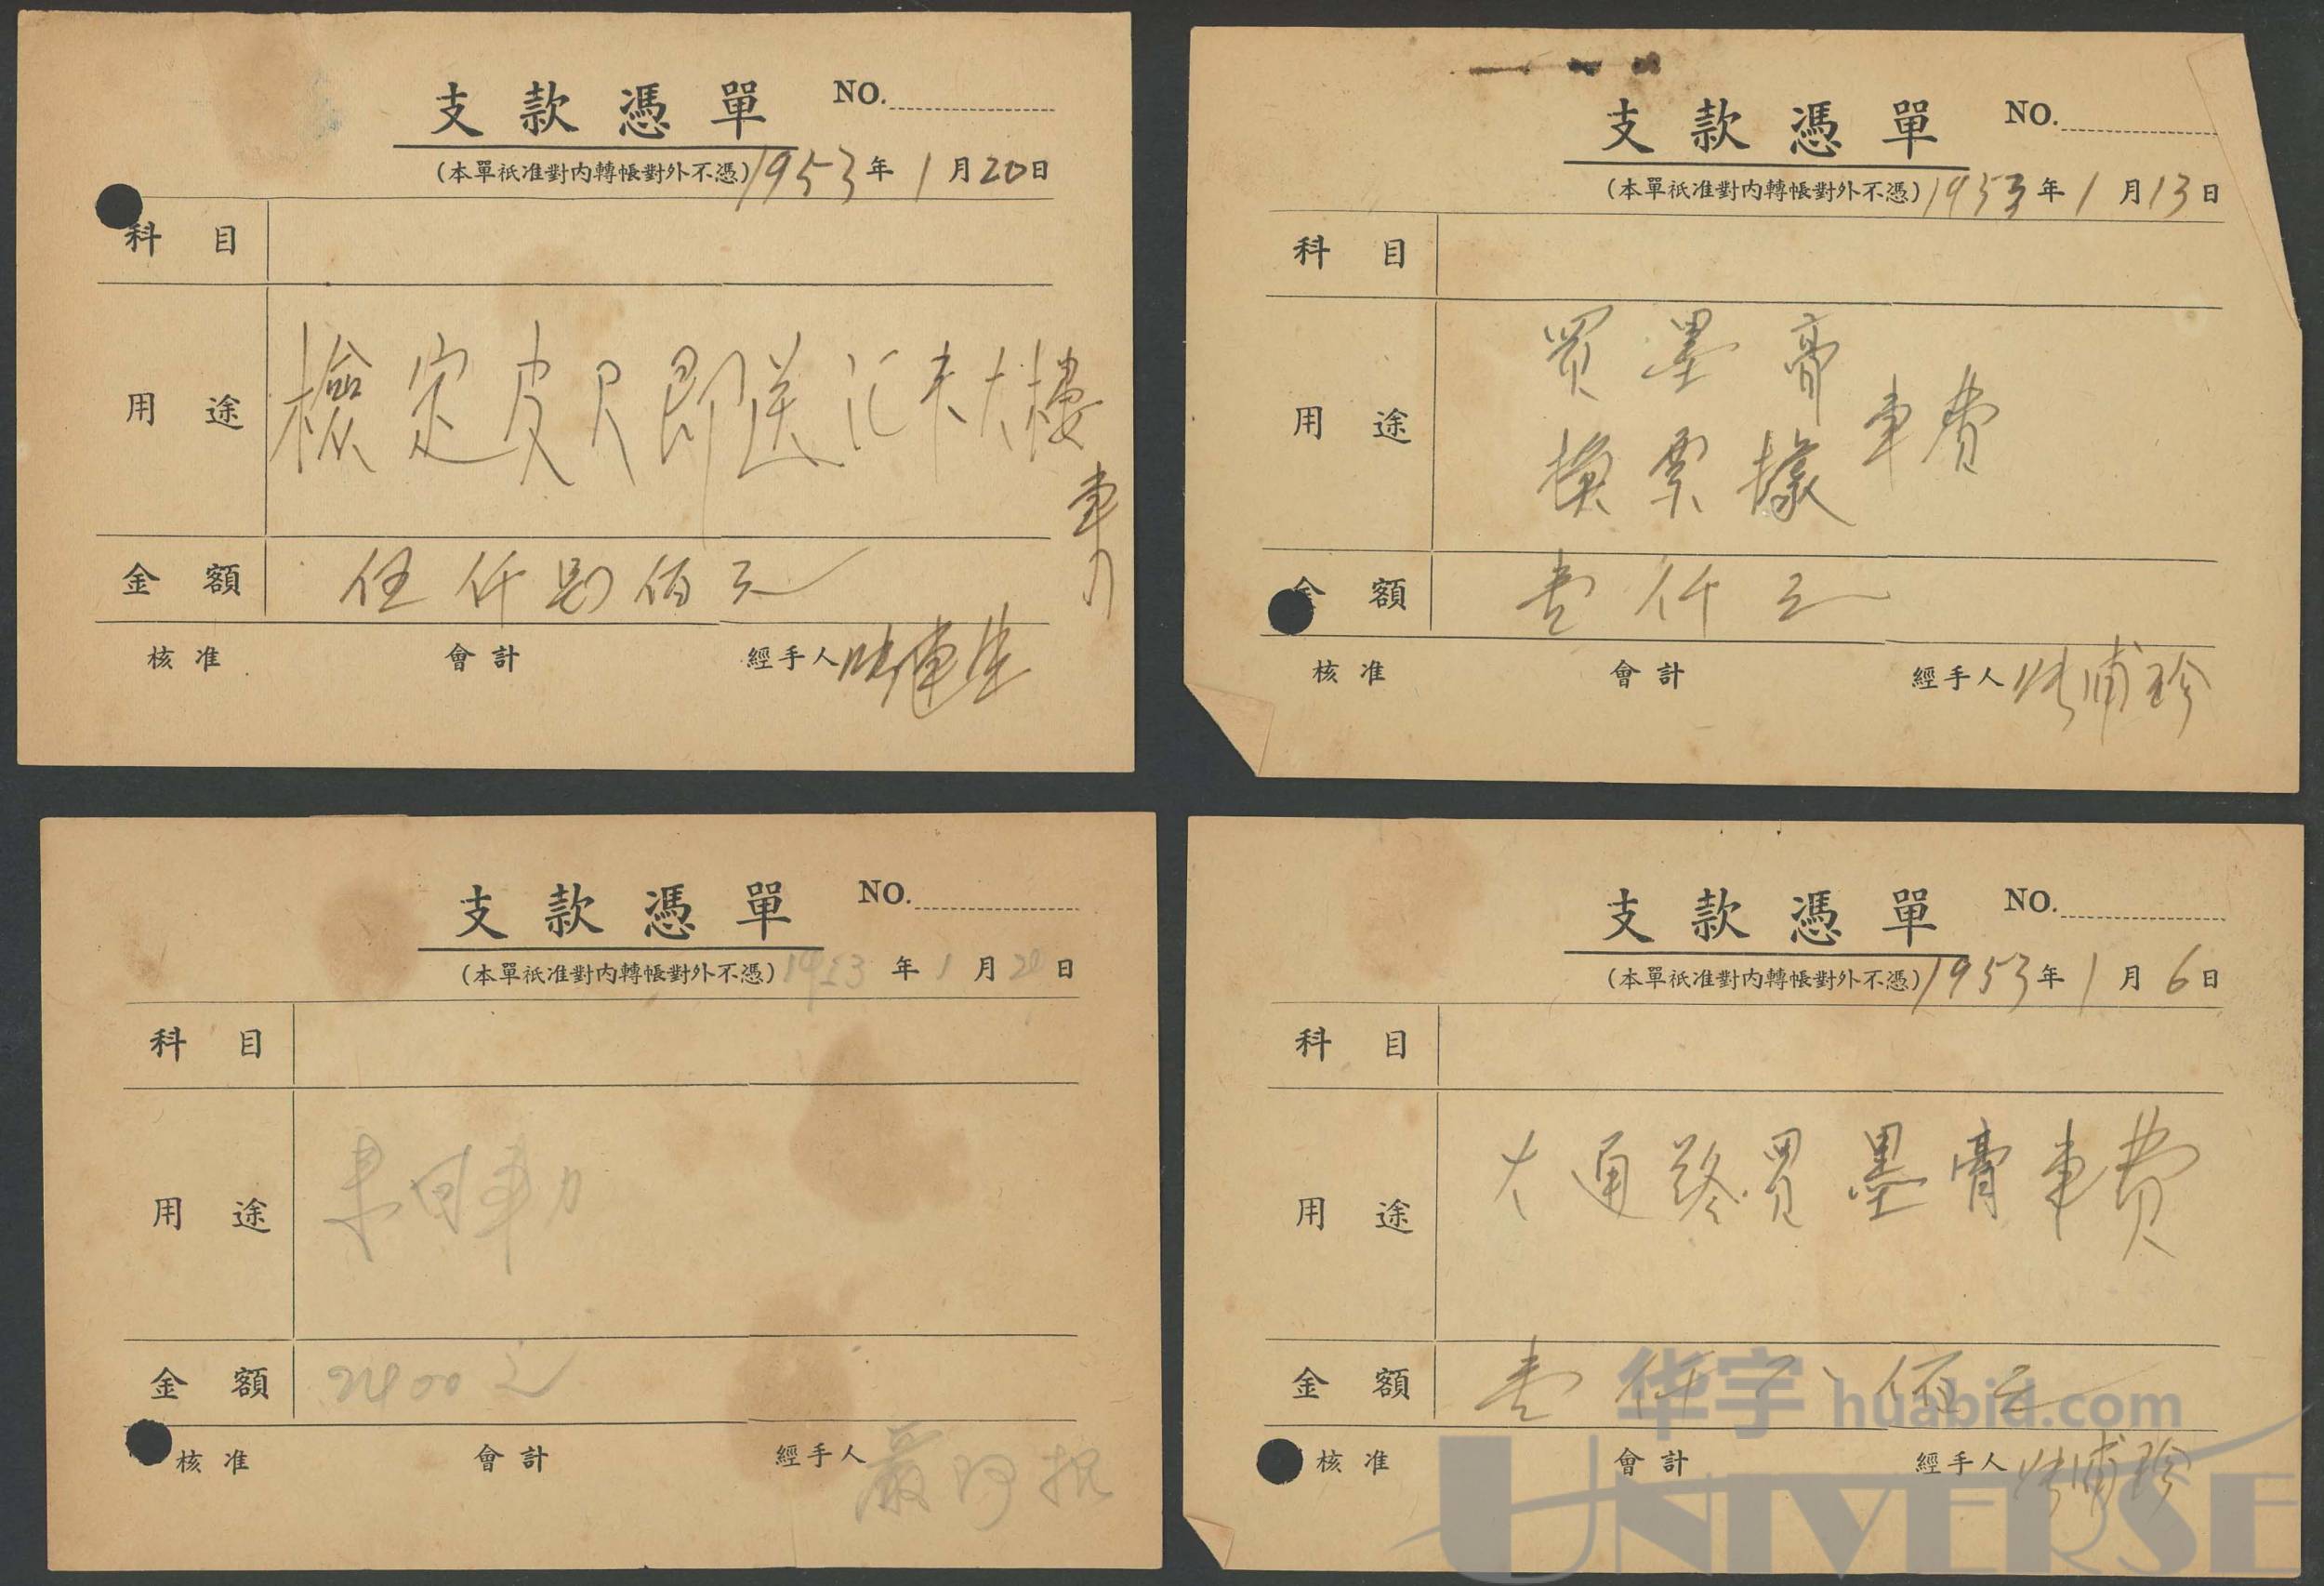 支款憑單 NO.
(本單祇准對內轉帳對外不憑) 1953年1月20日
科目
用途 檢定皮尺即送汇大樓
車力
金額 伍仟 佰元
核准 會計 經手人
支款憑單 NO.
(本單祇准對內轉帳對外不憑) 1953年1月13日
科目
用途 買墨膏
換票據 車費
金額 壹仟元
核准 會計 經手人 浦珍
支款憑單 NO.
(本單祇准對內轉帳對外不憑) 1953年1月2日
科目
用途 来回車力
金額 2400元
核准 會計 經手人 嚴阿根
支款憑單 NO.
(本單祇准對內轉帳對外不憑) 1953年1月6日
科目
用途 大通路買墨膏車費
金額 壹仟 佰元
核准 會計 經手人 浦珍
华宇 huabid.com
UNIVERSE